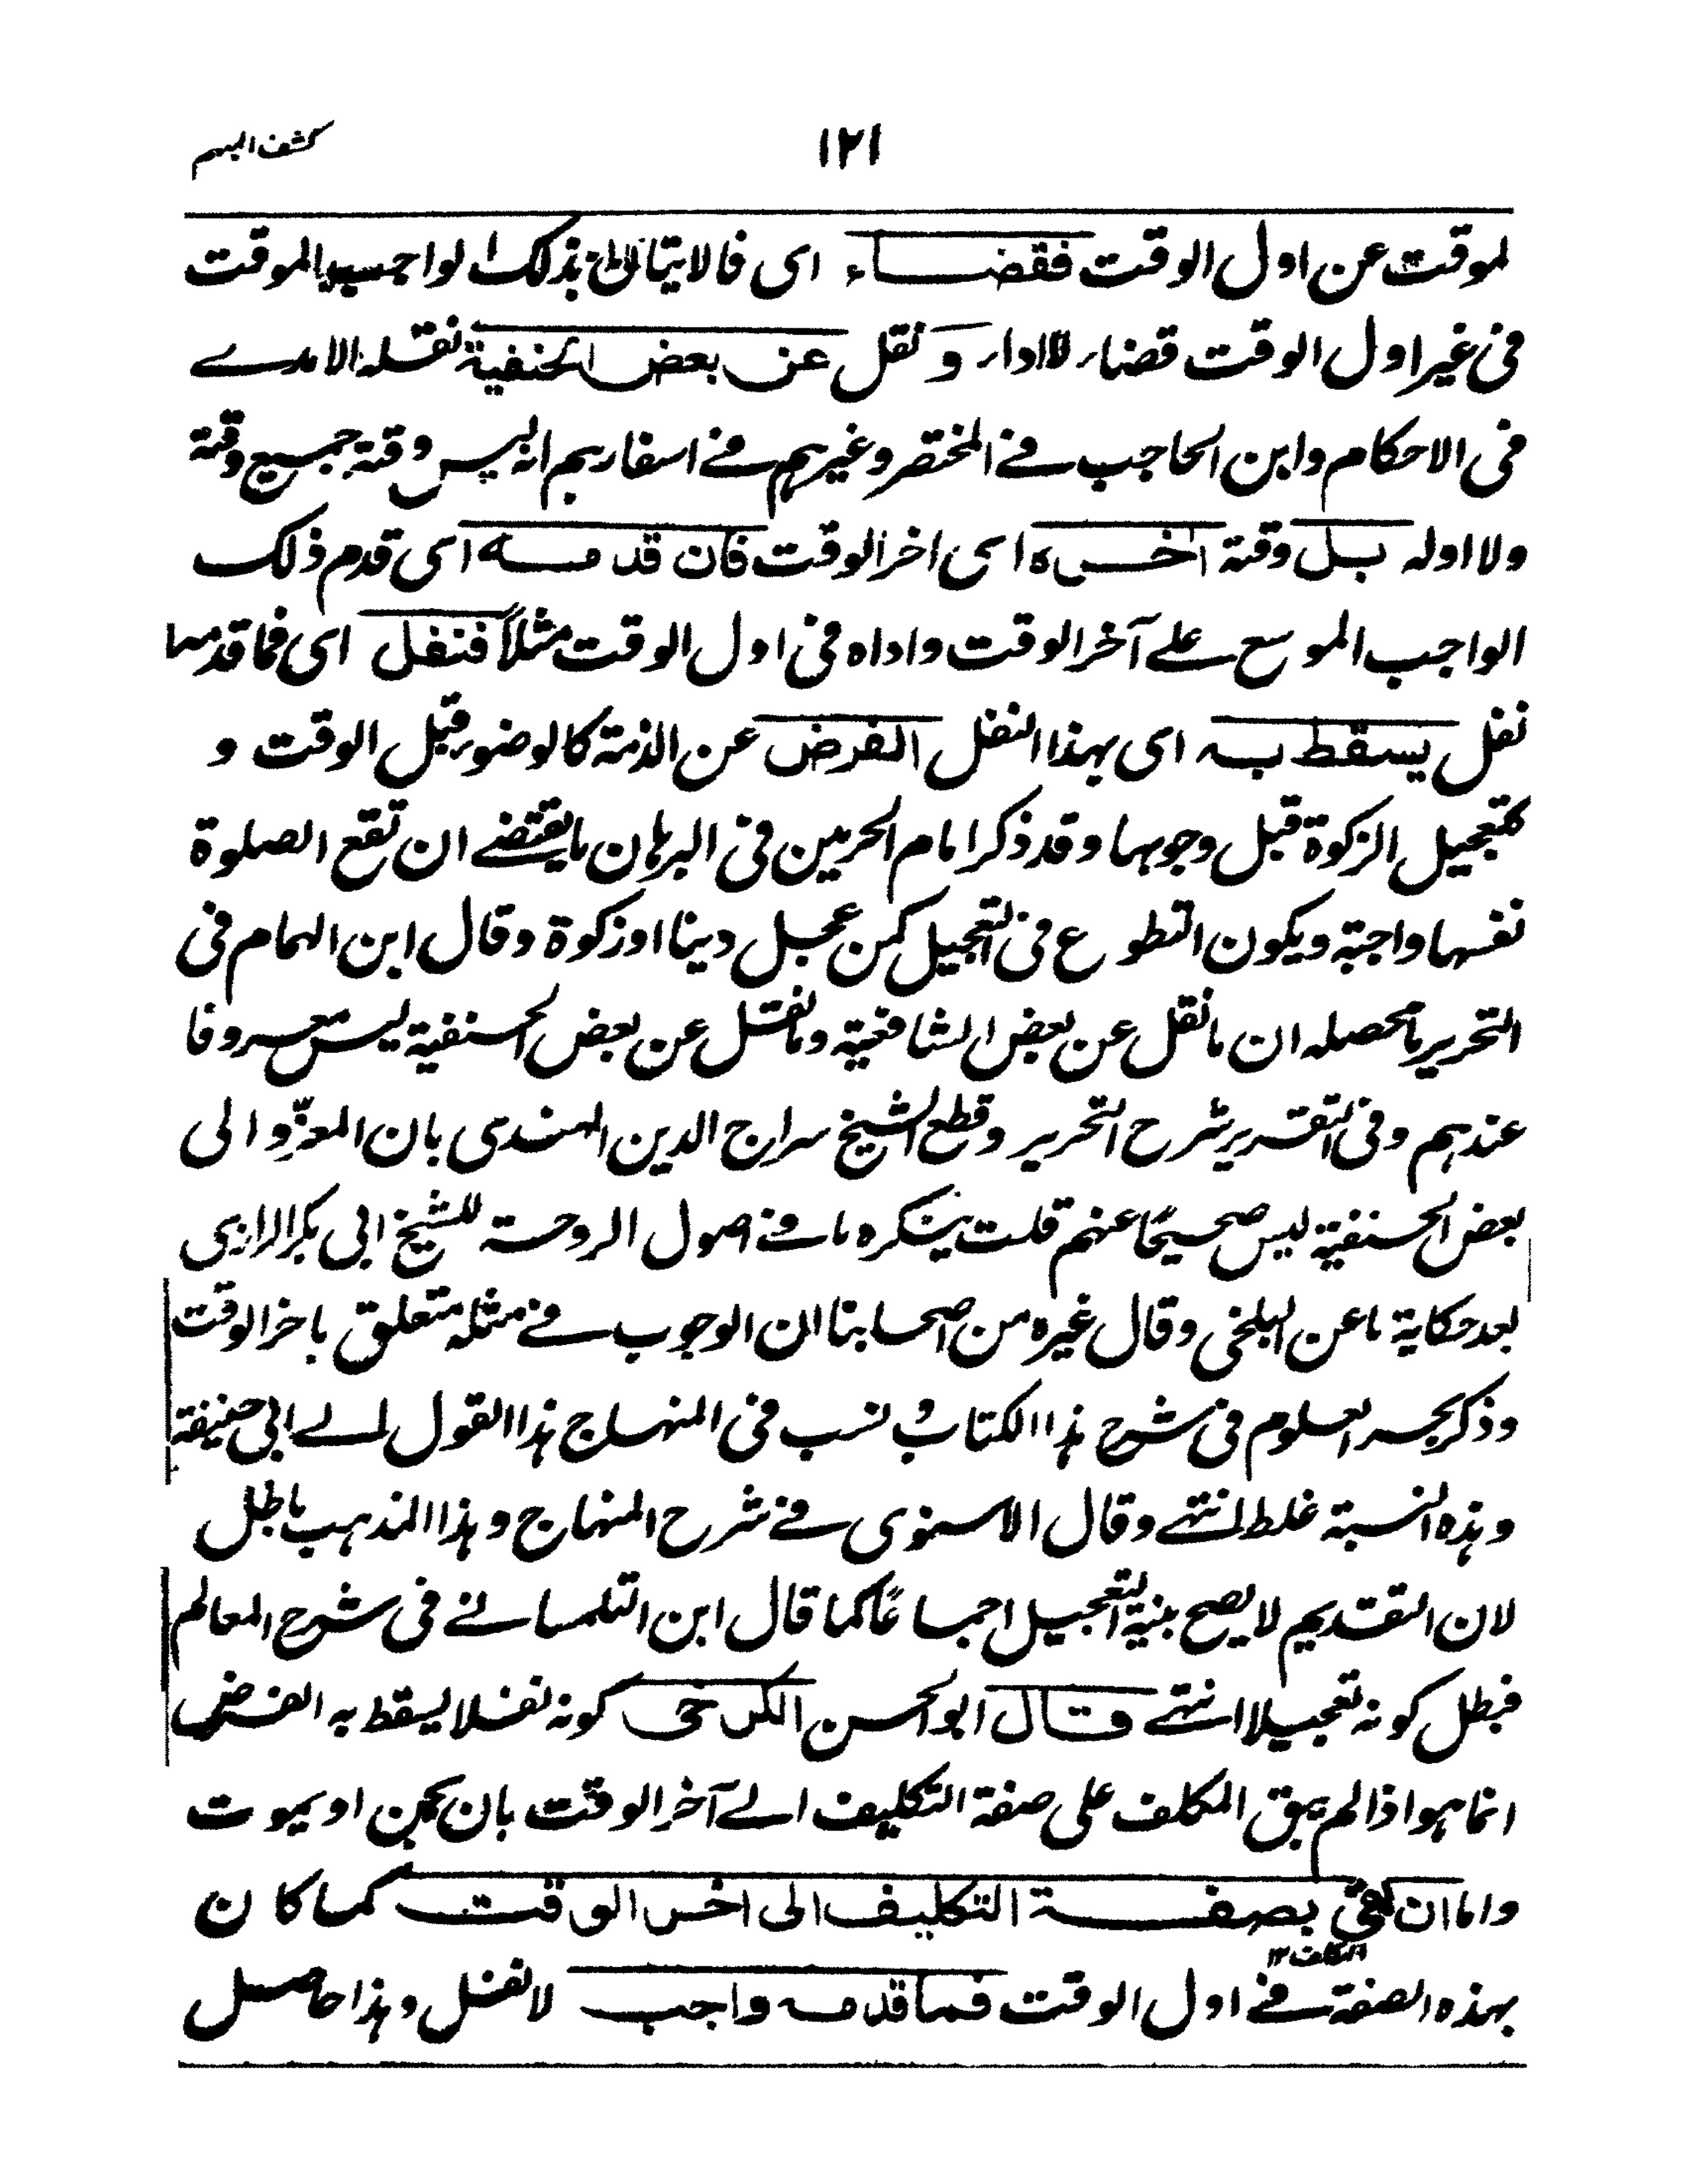 كشف المبهم
١٢١
لموقت عن اول الوقت فقضاء اى فالاتيان بذلك الواجب الموقت
فى غير اول الوقت قضاء لااداء و نقل عن بعض الحنفية نقله الامدے
فى الاحكام وابن الحاجب فے المختصر وغيرهم فے اسفارهم انه ليس وقته جميع وقته
ولا اوله بل وقته اخره اى اخر الوقت فان قدمه اى قدم ذلك
الواجب الموسع علے آخر الوقت واداه فى اول الوقت مثلاً فنفل اى فما قدمها
نفل يسقط به اى بهذا النفل الفرض عن الذمة كالوضوء قبل الوقت و
كتعجيل الزكوة قبل وجوبها وقد ذكر امام الحرمين فى البرهان ما يقتضے ان تقع الصلوة
نفسها واجبة ويكون التطوع فى التعجيل كمن عجل دينا او زكوة وقال ابن الهمام فى
التحرير ما محصله ان ما نقل عن بعض الشافعية وما نقل عن بعض الحنفية ليس معروفا
عندهم وفى التقرير شرح التحرير وقطع الشيخ سراج الدين الهندى بان المعزو الى
بعض الحنفية ليس صحيحًا عنهم قلت ينكره ما فے اصول الروحة للشيخ ابى بكر الرازى
بعد حكاية ما عن البلخى وقال غيره من اصحابنا ان الوجوب فے مثله متعلق باخر الوقت
وذكر بحر العلوم فى شرح هذا الكتاب و نسب فى المنهاج هذا القول لے ابى حنيفة
وهذه النسبة غلط انتهے وقال الاسنوى فے شرح المنهاج وهذا المذهب باطل
لان التقديم لا يصح بنية التعجيل اجماعًا كما قال ابن التلمسانے فى شرح المعالم
فبطل كونه تعجيلا انتهے وقال ابو الحسن الكرخى كونه نفلا يسقط به الفرض
انما هو اذا لم يبق المكلف على صفة التكليف الے آخر الوقت بان يجن او يموت
واما ان بقى بصفة التكليف الى اخر الوقت كما كان
المكلف ١٢
بهذه الصفة فے اول الوقت فما قدمه واجب لا نفل وهذا حاصل